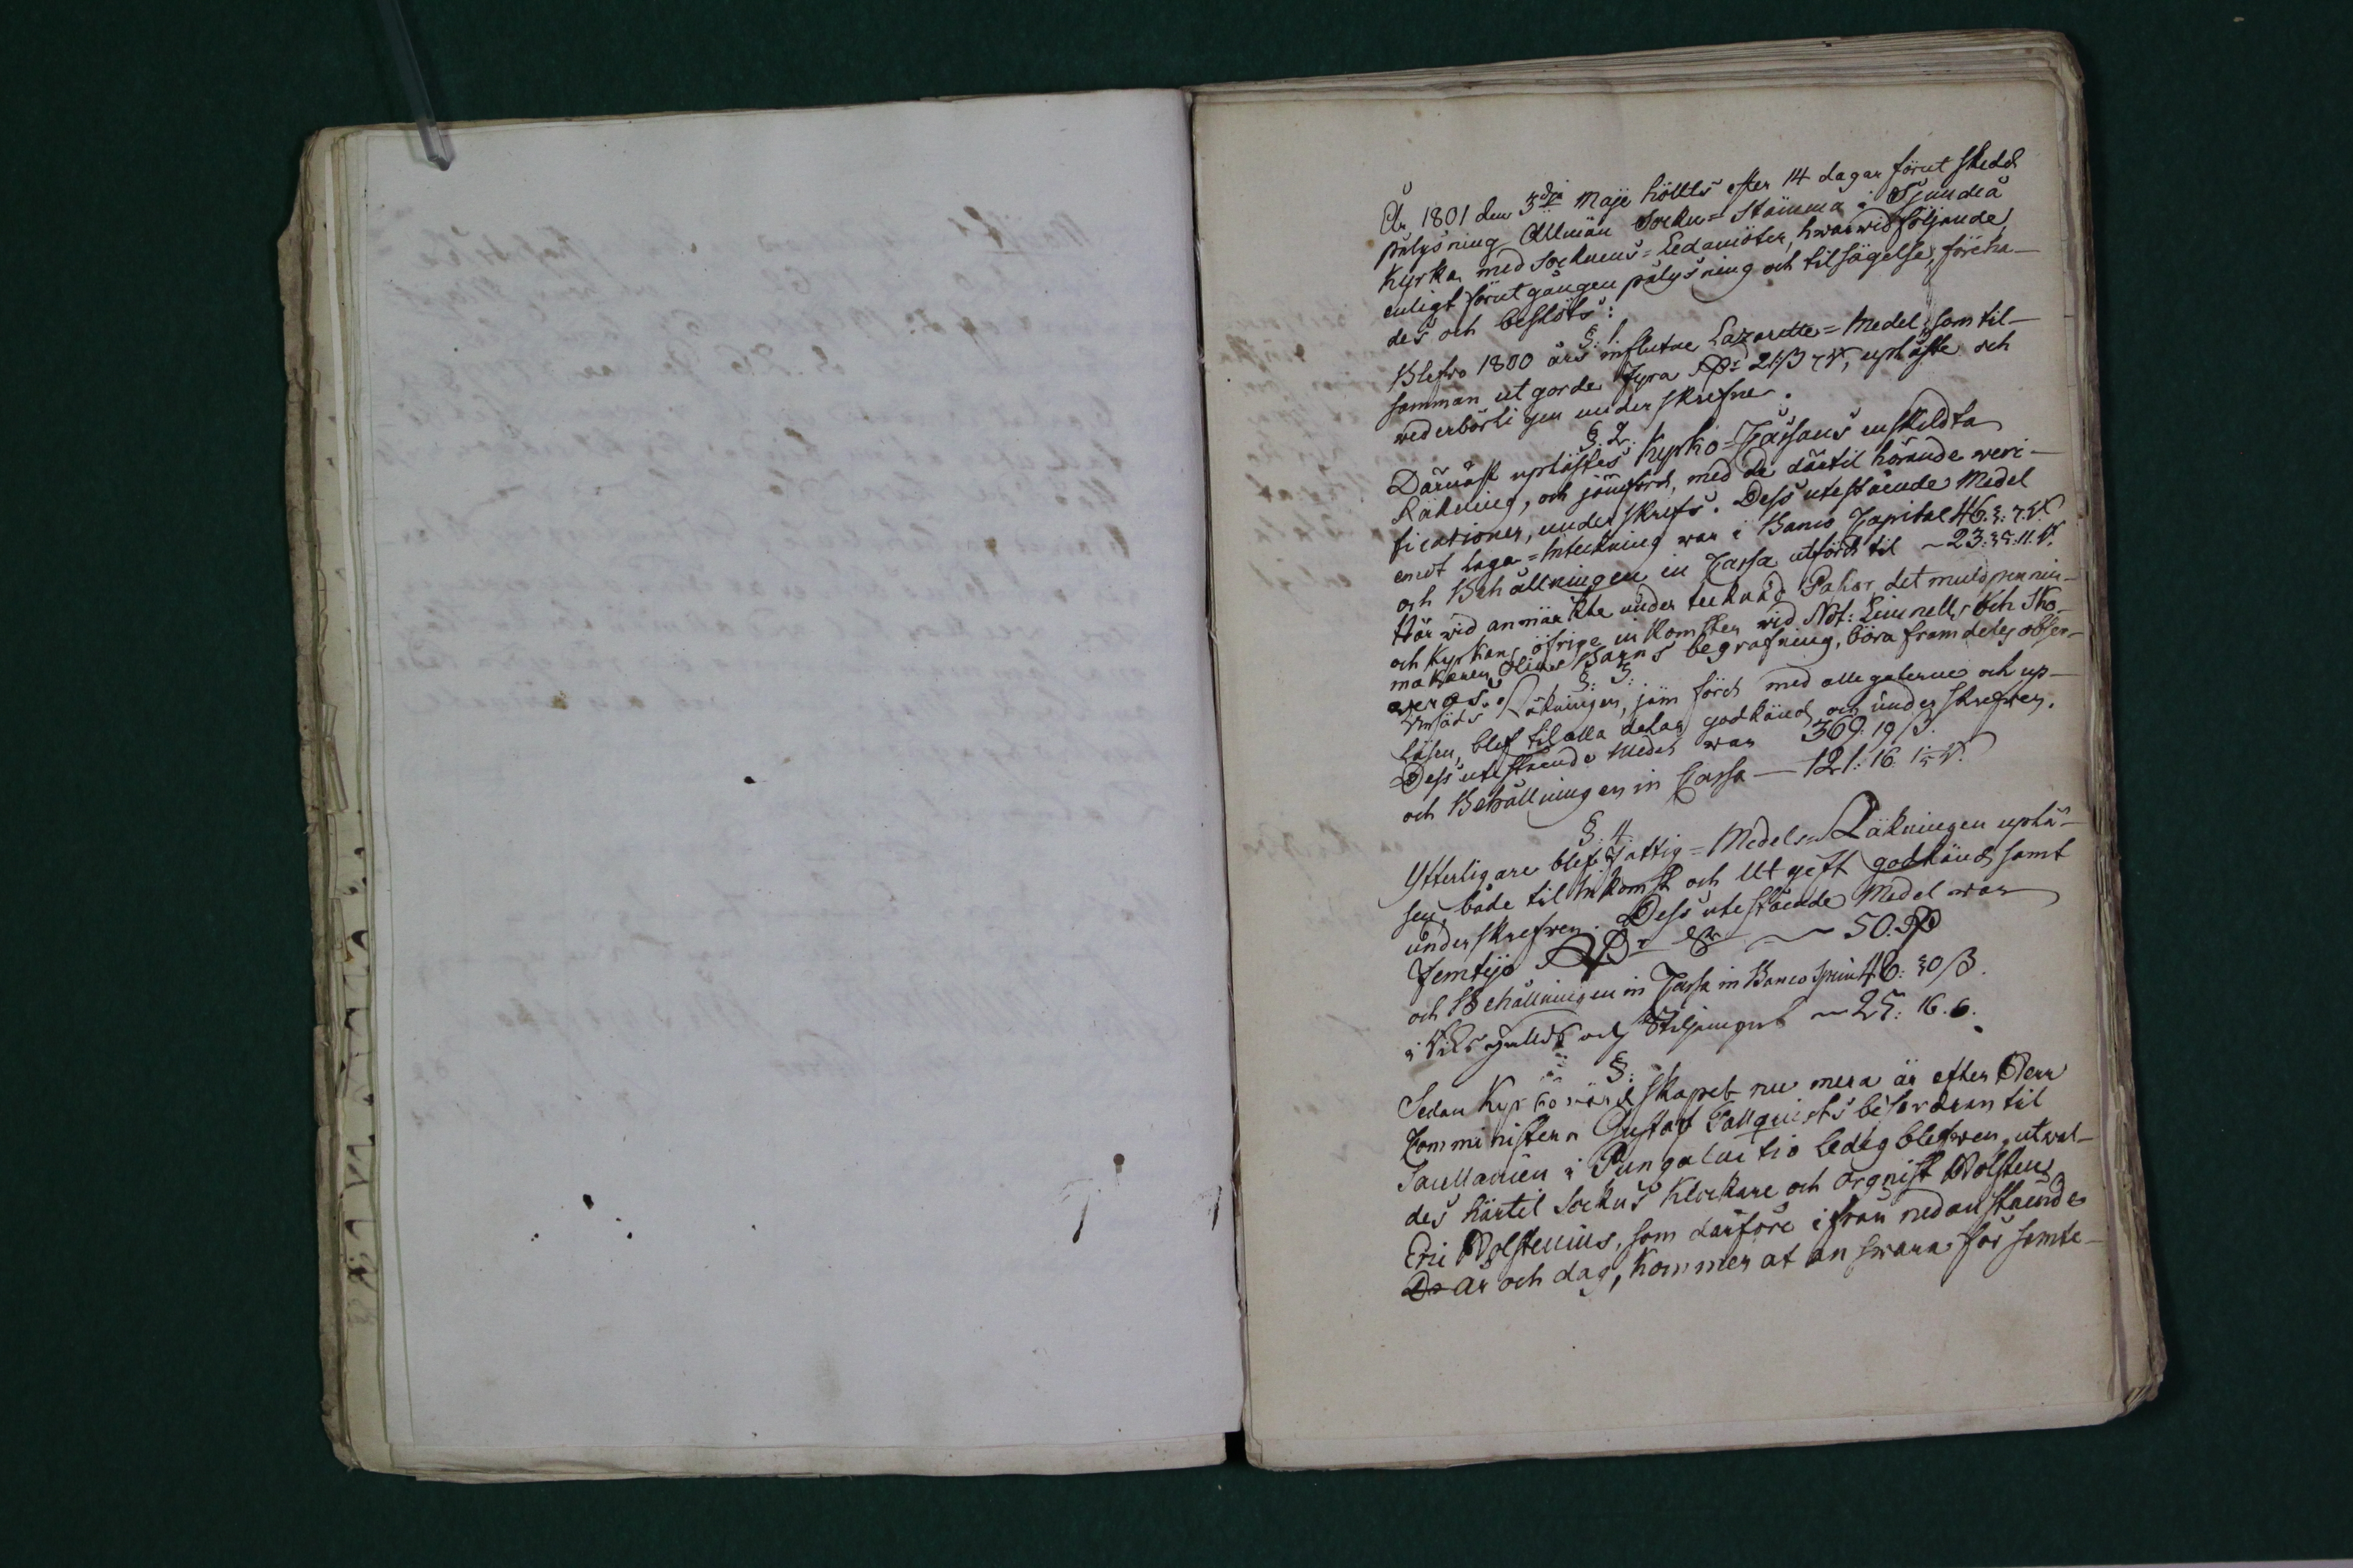 År 1801 den 3dje Maje höllts efter 14 dagar förut skedd
pålysning Allmän Sockne=Stämma i Sjundeå
Kyrka med Socknens=Ledamöter, hwarwid följande,
enligt förut gången pålysning och tilsägelse, föreha-
des och beslöts:
§: 1.
Blefwo 1800 års influtne Lazarette=Medel, som til-
samman utgorde Fyra Rd: 21 ß, upläste och
wederbörligen underskrefne.
§. 2.
Därnäst uplästes Kyrko=Cassans enskildta
Räkning, och jämförd, med de därtil hörande weri-
ficationer, underskrefs. Dess utestående Medel
emot laga=Inteckning war i Banco Capital 46.
och Behållningen in Cassa utförd til ~ 23:
Härwid anmärkte undertecknad Pastor, det
och Kyrkans öfrige inkomster wid Not: Limnells och Sko-
makaren Barns begrafning, böra framdeles obser-
weras.
§: 3:
Räkningen, jämförd med allegaterne och up-
läsen, blef til alla delar godkänd och underskrefwen.
Dess utestående Medel war 369. 19 ß.
och Behållningen in Cassa — 121: 16.
§: 4.
Ytterligare blef Fattig=Medels=Räkningen uplä-
sen, både til Inkomst och Utgift godkänd, samt
underskrefwen. Dess utestående Medel war
Femtijo Rd ~ 50. Rd
och Behållningen in Cassa in Banco 46: 30 ß.
i Riksgälds och Skiljemynt ~ 25: 16. 6.
§:
Sedan Kyrkowärdskapet nu mera är efter Herr
Comministern Gustaf Tallquists befordran til
i Pungalaitio ledig blefwen, utwal-
des härtil Socknes Klockare och Orgnist
Eric Wolstenius, som därföre ifrån nedanstående
år och dag, kommer at answara för samte-